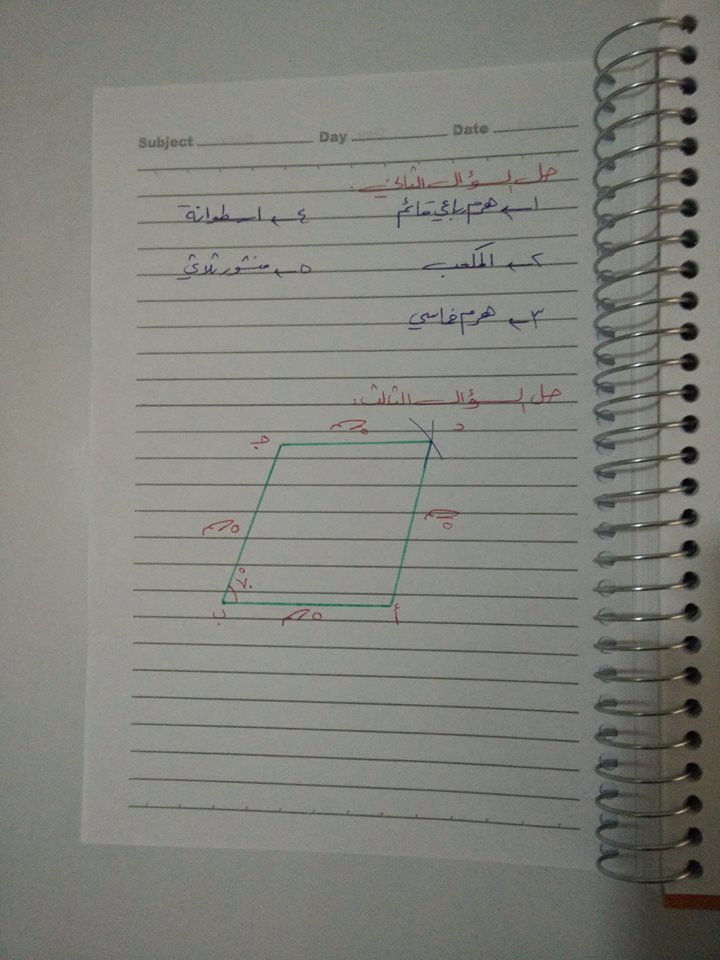 Subject Day Date
حل السؤال الثاني:
١← هرم رباعي قائم ٤← اسطوانة
٢← المكعب ٥← منشور ثلاثي
٣← هرم خماسي
حل السؤال الثالث:
جـ ٥سم د
٥سم ٥سم
٧٠°
ب ٥سم أ